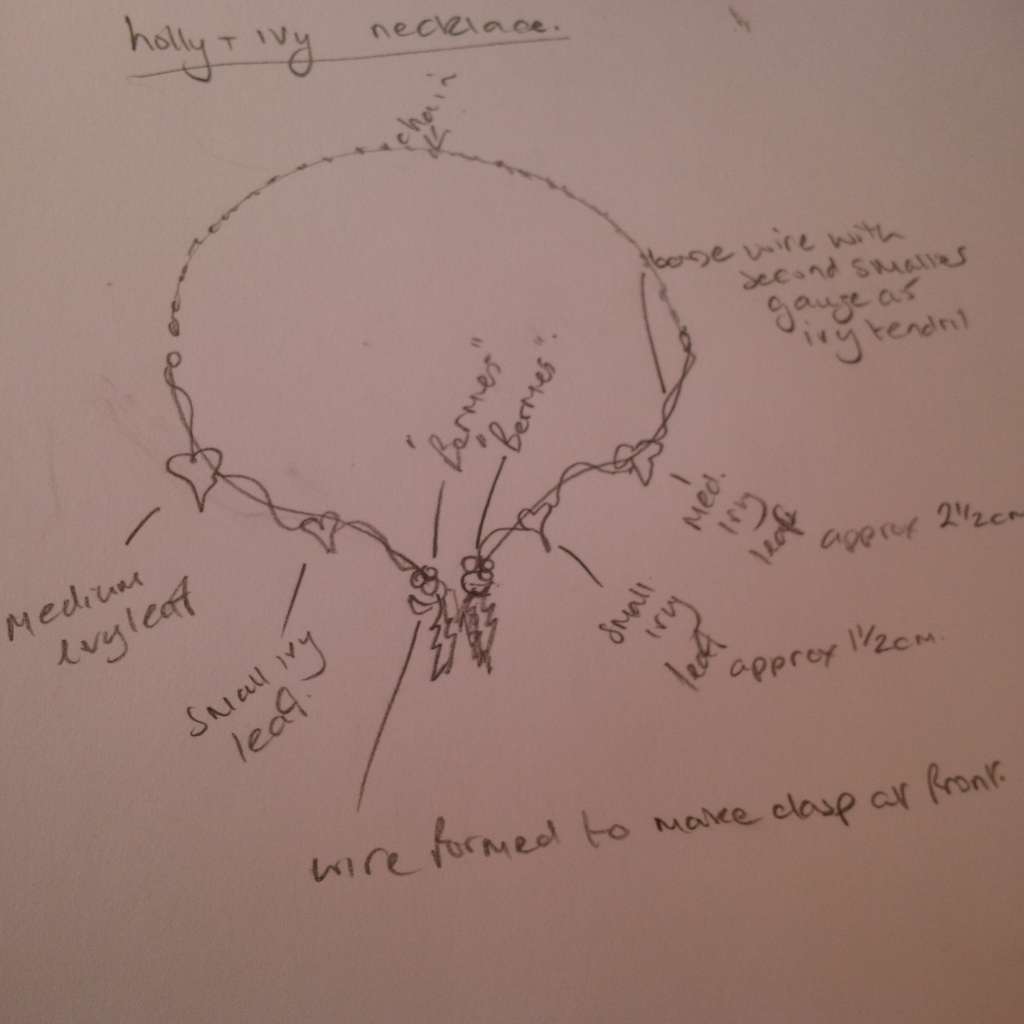 holly + ivy necklace.
chain
base wire with
second smaller
gauge as
ivy tendril
"Berries"
"Berries".
Med.
ivy
leaf approx 2 1/2 cm
Medium
ivy leaf
Small
ivy
leaf approx 1 1/2 cm.
Small ivy
leaf.
wire formed to make clasp at front.